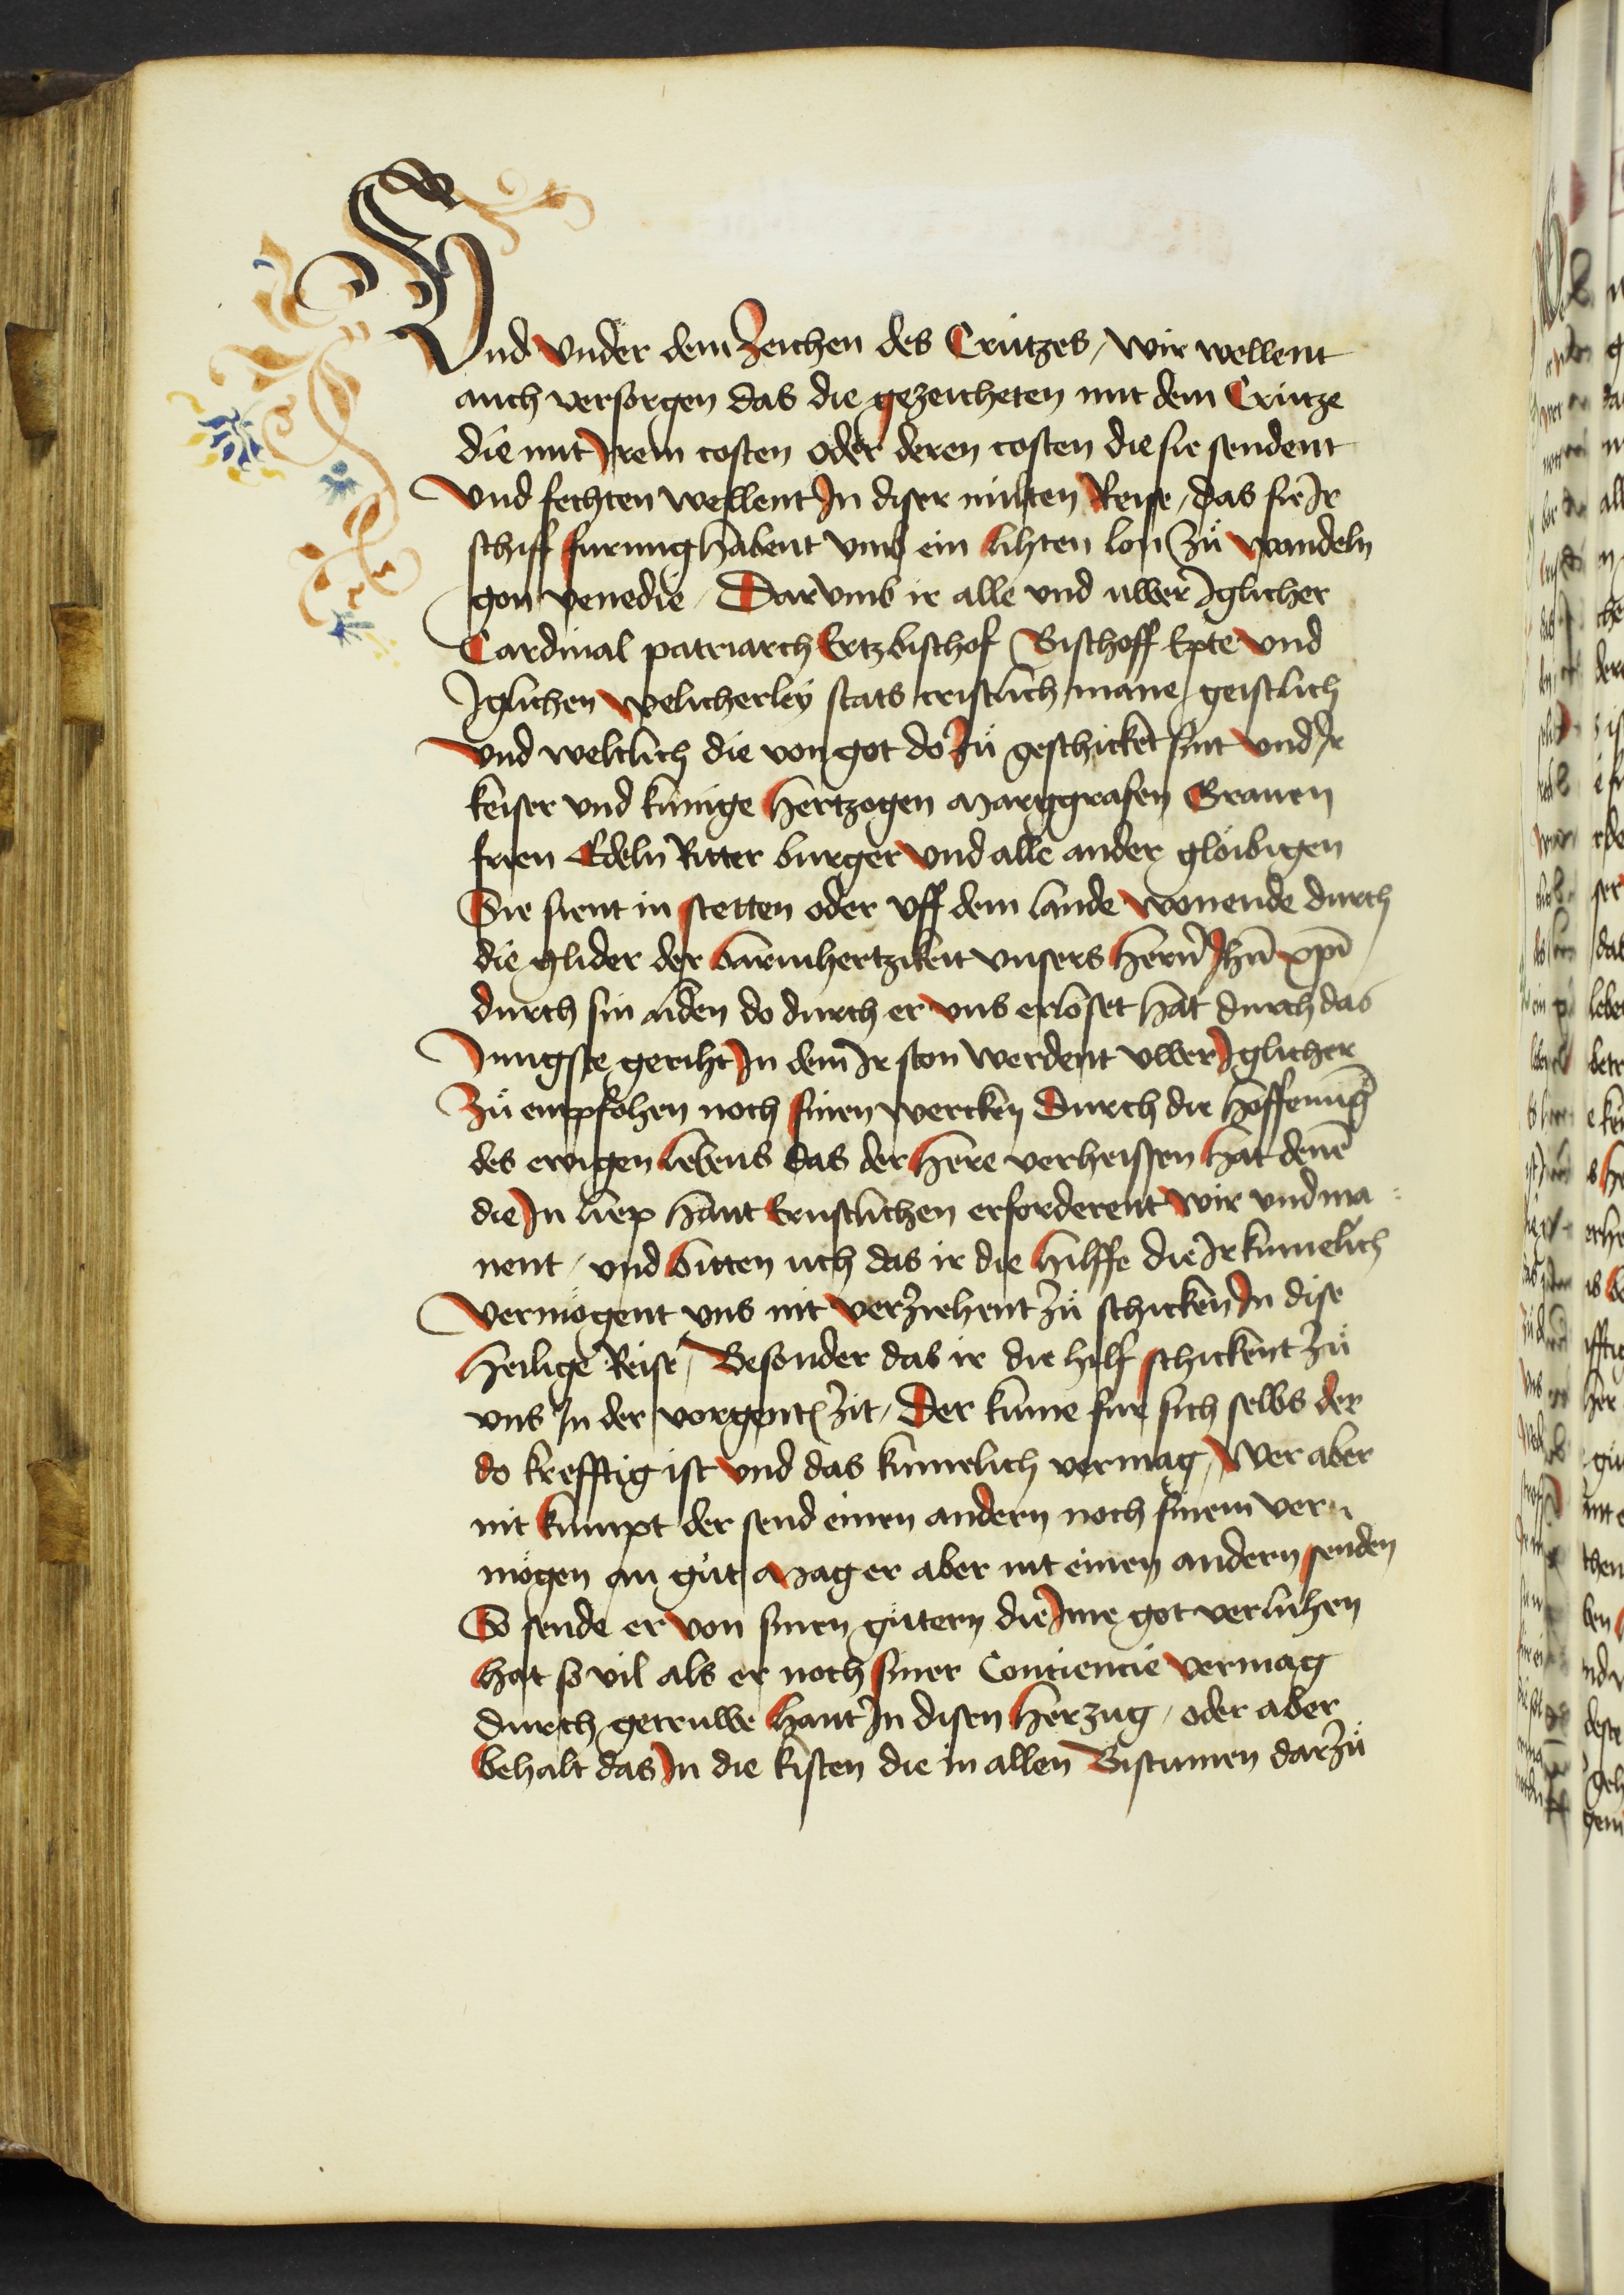 Vnd vnder dem Zeichen des Crützes / wir wellent
auch versorgen das die gezeicheten mit dem Crütze
die mit Jrem costen oder deren costen die sie sendent
vnd fechten wellent Jn diser milten Reise / das sie Jr
schiff furung habent vmb ein lihten lon Zů wandeln
gon venedie / Dar vmb ir alle vnd uwer Jglicher
Cardinal patriarch Ertzbischof Bischoff Epte vnd
Jglichen welicherley stats cristlich mane / geistlich
vnd weltlich die von got do Zů geschicket sint vnd Jr
keiser vnd kunige hertzogen Marggrafen Grauen
frien Edeln Ritter burger vnd alle ander glöibigen
Sie sient in stetten oder vff dem lande wonende durch
die glider der barmhertzikeit vnsers hern̄ Jhū xp̄i
durch sin liden do durch er vns erloset hat durch das
Jungste geriht Jn dem Jr ston werdent vwer Jglicher
Zů empfohen noch sinen wercken Durch die hoffenung
des ewigen lebens das der here verheissen hat denē
die Jn liep hant Ernstlichen erforderent wir vnd ma
nent / vnd bitten uch das ir die hilffe die Jr kumelich
vermögent vns nit verziehent zů schicken Jn dise
heilige Reise / Besonder das ir die hilf schickent zů
vns Jn der vorgent zit / Der kume fur sich selbs der
do krefftig ist vnd das kumelich vermag / Wer aber
nit kumpt der send einen andern noch sinem ver
mögen an gůt Mag er aber nit einen andern senden
So sende er von sinen gütern die Jme got verluhen
hat so vil als er noch siner Contiencie vermag
durch getruwe hant Jn disen herzug / oder aber
behalt das Jn die kisten die in allen Bistumen darzů